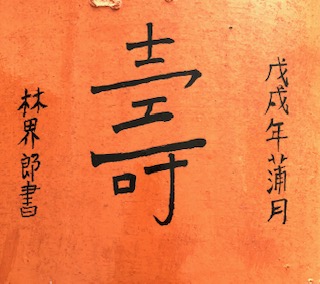 戊戌年蒲月
壽
林界郎書